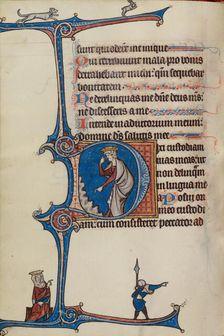 sunt quoniam inimique
Qui retribuunt mala pro bonis
detrahebant michi: qm sequebar
bonitatem
Ne derelinquas me domine deus ms:
ne discesseris a me
Intende in adiutorium meum
domine ds salutis mee
Dixi custodiam
uias meas: ut
non delinquam
in lingua mea
Posui on
meo custodi
am: cum consisteret peccator ad